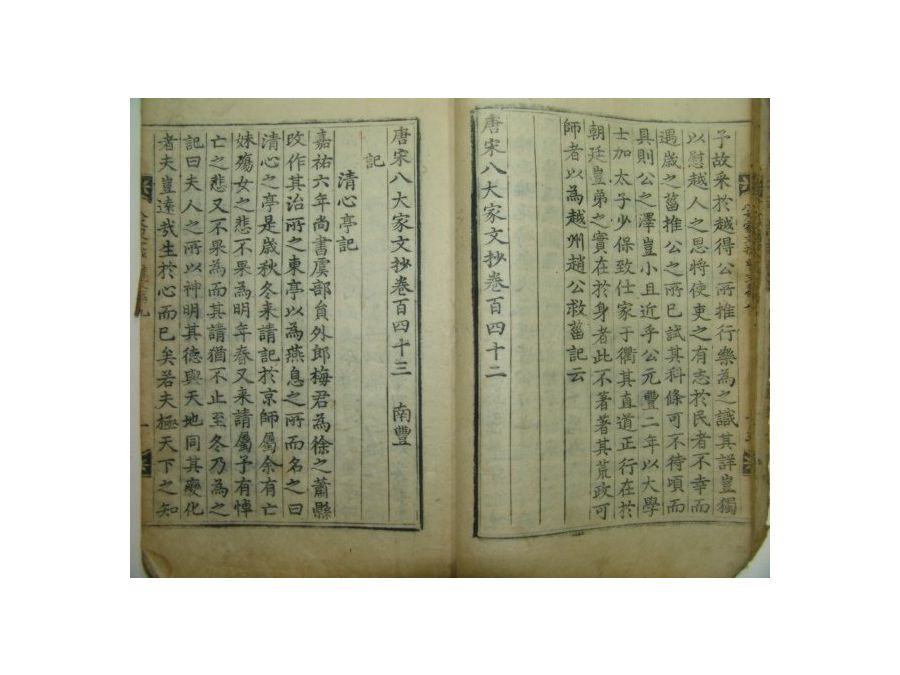 予故采於越得公所推行樂為之識其詳豈獨
以慰越人之思將使吏之有志於民者不幸而
遇歲之菑推公之所已試其科條可不待頃而
具則公之澤豈小且近乎公元豐二年以大學
士加太子少保致仕家于衢其直道正行在於
朝廷豈弟之實在於身者此不著著其荒政可
師者以為越州趙公救菑記云
唐宋八大家文抄卷百四十二
唐宋八大家文抄卷百四十三 南豐
記
清心亭記
嘉祐六年尚書虞部員外郎梅君為徐之蕭縣
改作其治所之東亭以為燕息之所而名之曰
清心之亭是歲秋冬来請記於京師屬余有亡
妹殤女之悲不果為明年春又来請屬予有悼
亡之悲又不果為而其請猶不止至冬乃為之
記曰夫人之所以神明其德與天地同其變化
者夫豈遠哉生於心而已矣若夫極天下之知